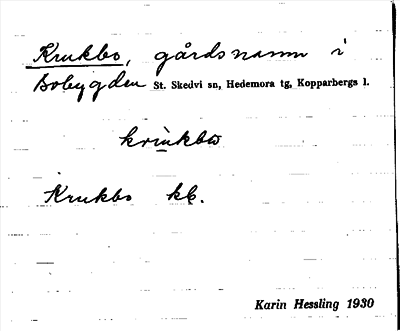 Krukbo, gårdsnamn i
Bobygden St. Skedvi sn, Hedemora tg, Kopparbergs l.
Krukbo kb.
Karin Hessling 1930